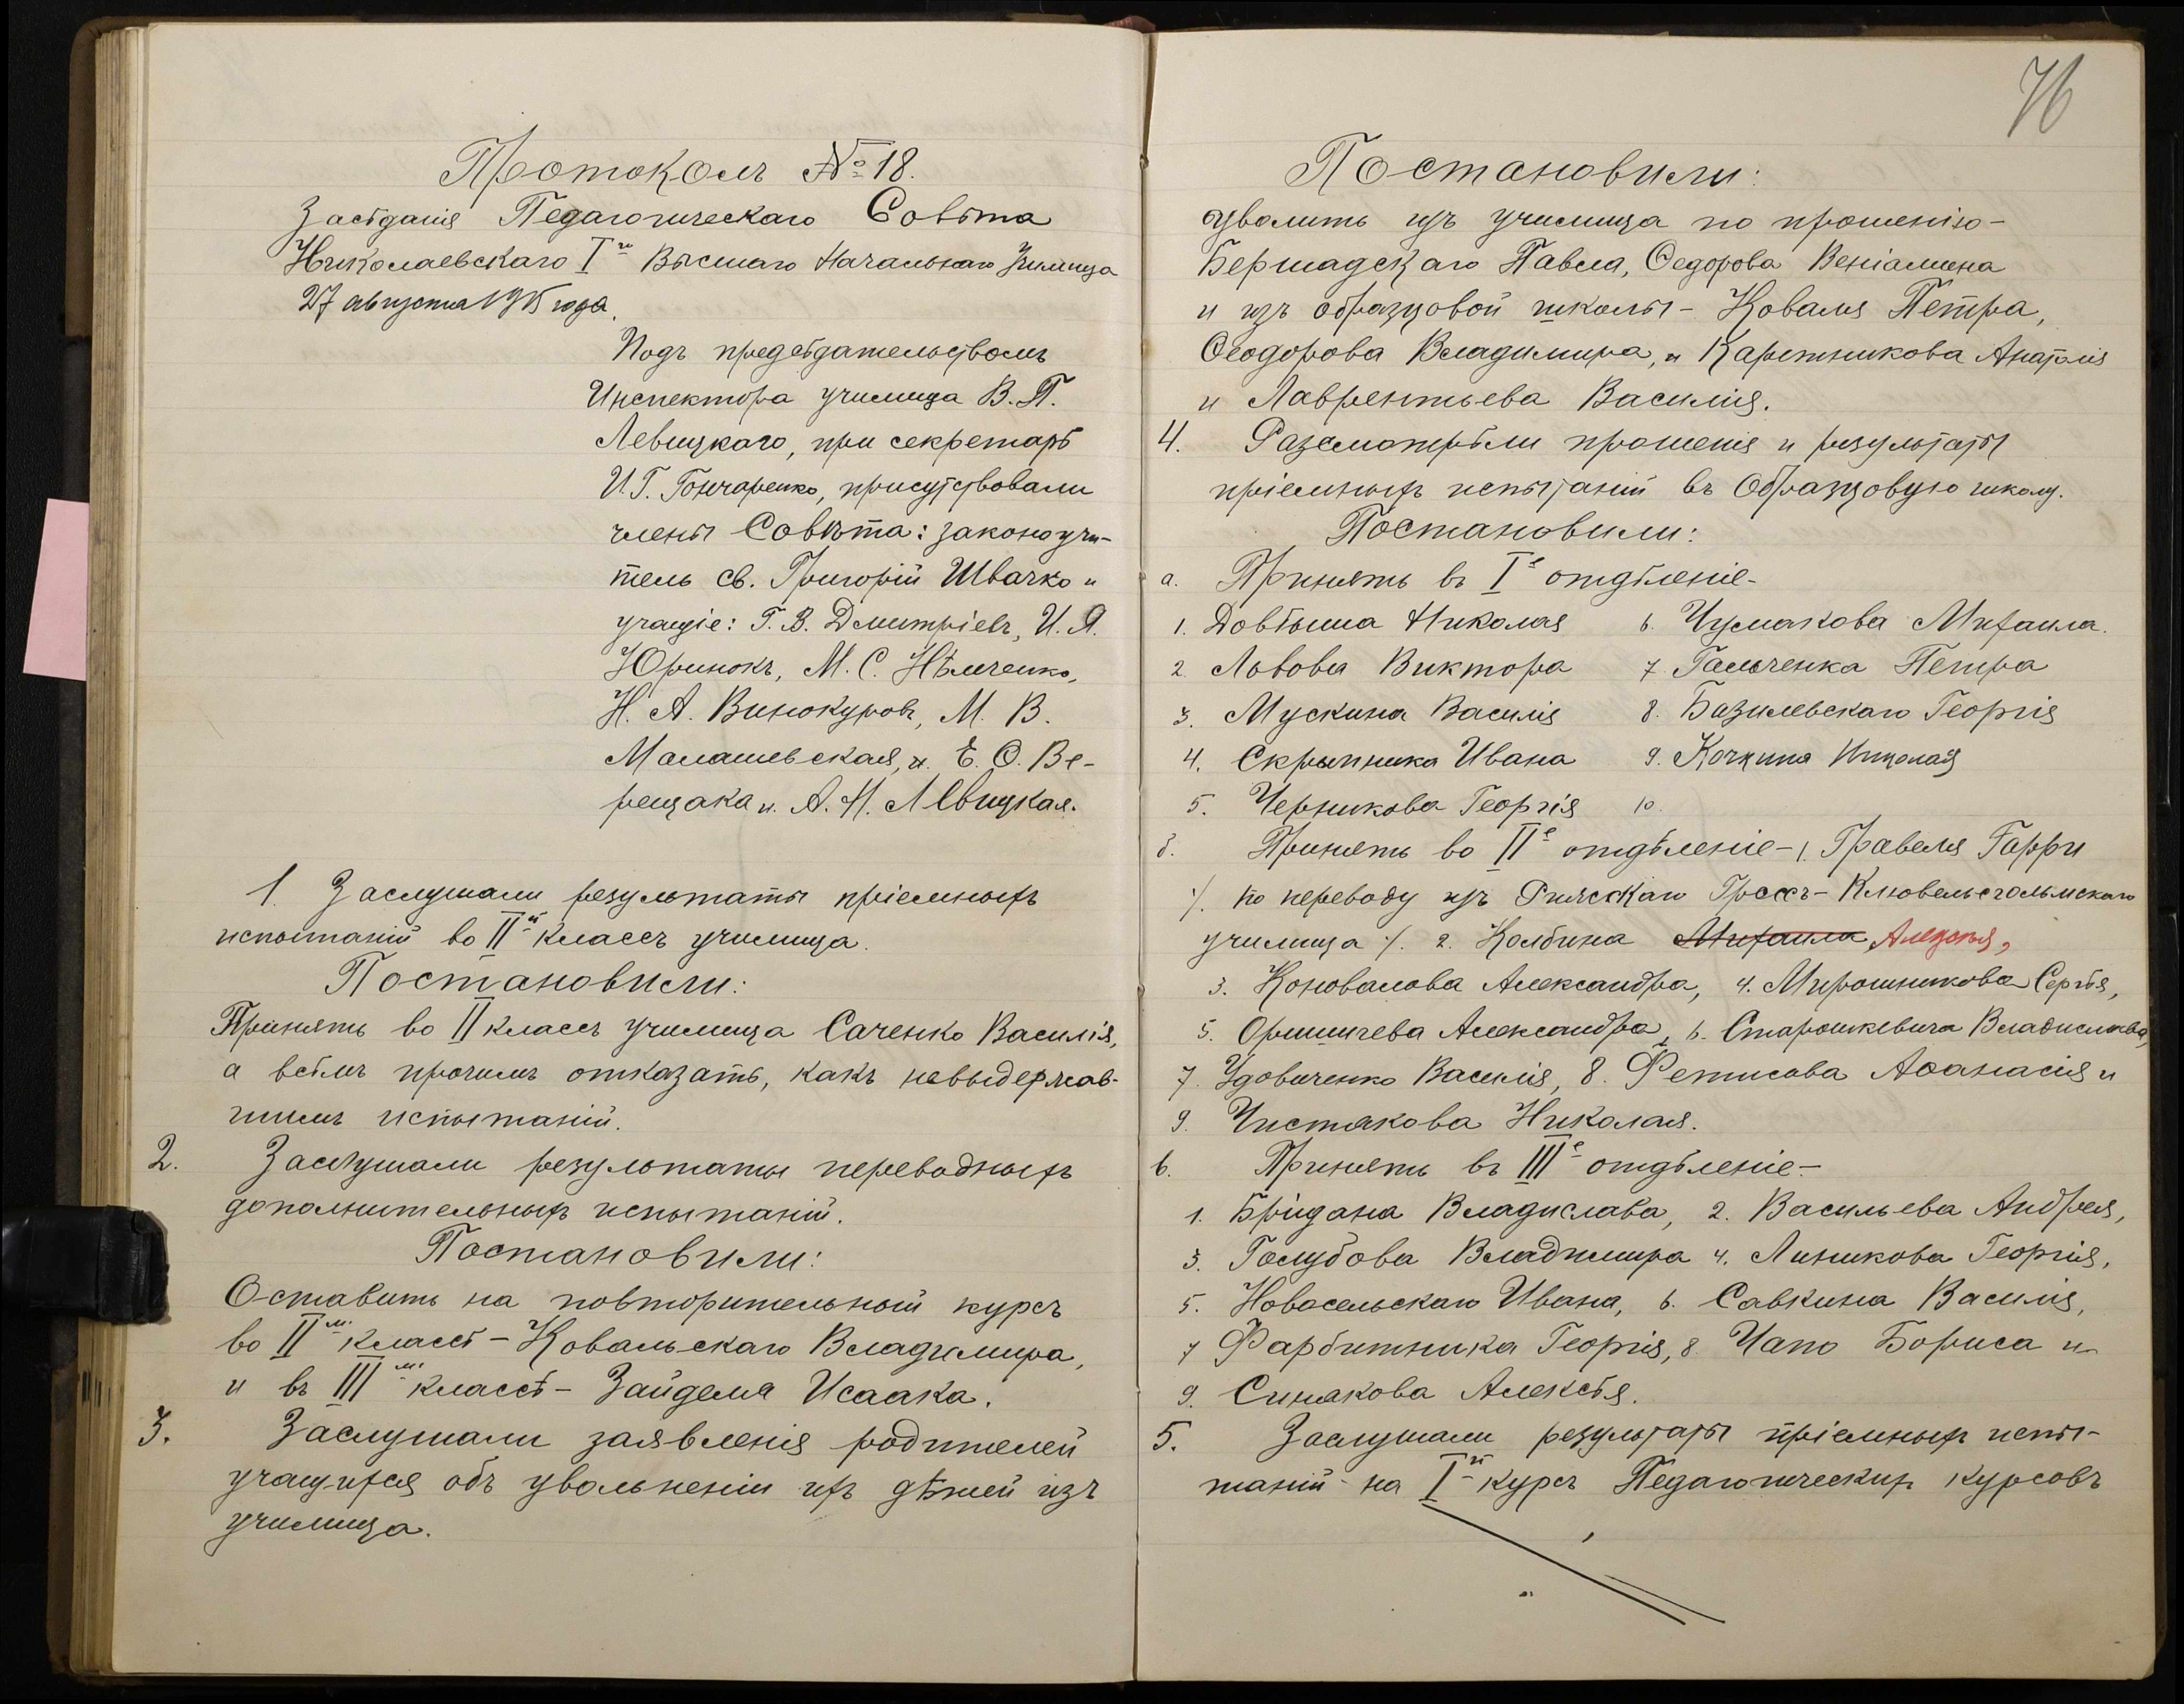 Протоколъ № 18.
Засѣданія Педагогическаго Совѣта
Николаевскаго I го Высшаго Начальнаго Училища
27 августа 1915 года.
Подъ предсѣдательствомъ
Инспектора училища В. П.
Левицкаго, при секретарѣ
И.Г. Гончаренко, присутствовали
члены Совѣта: законоучи-
тель св. Григорій Швачко и
учащіе: Г. В. Дмитріевъ, И. Я.
Юринокъ, М. С. Нѣмченко,
Н. А. Винокуровъ, М. В.
Малашевская, и Е. О. Ве-
рещака и. А. Н. Левицкая.
1. Заслушали результаты пріемныхъ
испытаній во II й классъ училища.
Постановили:
Принять во II классъ училища Саченко Василія,
а всѣмъ прочимъ отказать, какъ невыдержав-
шимъ испытаній.
2. Заслушали результаты переводныхъ
дополнительныхъ испытаній.
Постановили:
Оставить на повторительный курсъ
во II м. классѣ - Ковальскаго Владимира,
и въ III м. классѣ - Зайделя Исаака.
3. Заслушали заявленія родителей
учащихся объ увольненіи ихъ дѣтей изъ
училища.
76
Постановили:
уволить изъ училища по прошенію -
Бершадскаго Павла, Ѳедорова Веніамина
и изъ образцовой школы - Коваля Петра,
Ѳеодорова Владимира, и Каретникова Анатолія
и Лаврентьева Василія.
4. Разсмотрѣли прошенія и результаты
пріемныхъ испытаній въ Образцовую школу.
Постановили:
а. Принять въ I е отдѣленіе -
1. Довбыша Николая 6. Чумакова Михаила.
2. Львова Виктора 7. Гальченка Петра
3. Мускина Василія 8. Базилевскаго Георгія
4. Скрыпника Ивана 9. Кочкина Николая
5. Черникова Георгія 10.
б. Принять во II е отдѣленіе - 1. Гравеля Гарри
/. по переводу изъ Рижскаго Гросъ - Клювельсгольмскаго
училища /. 2. Колбина Михаила Алексѣя,
3. Коновалова Александра, 4. Мирошникова Сергѣя,
5. Оришичева Александра, 6. Старошкевича Владислава,
7. Удовиченко Василія, 8. Фетисова Аѳанасія и
9. Чистякова Николая.
в. Принять въ III е отдѣленіе -
1. Бридана Владислава, 2. Васильева Андрея,
3. Голубова Владимира 4. Линикова Георгія,
5. Новосельскаго Ивана, 6. Савкина Василія,
7 Фарбитника Георгія, 8. Чапо Бориса и
9. Синякова Алексѣя.
5. Заслушали результаты пріемныхъ испы-
таній на I й курсъ Педагогическихъ курсовъ